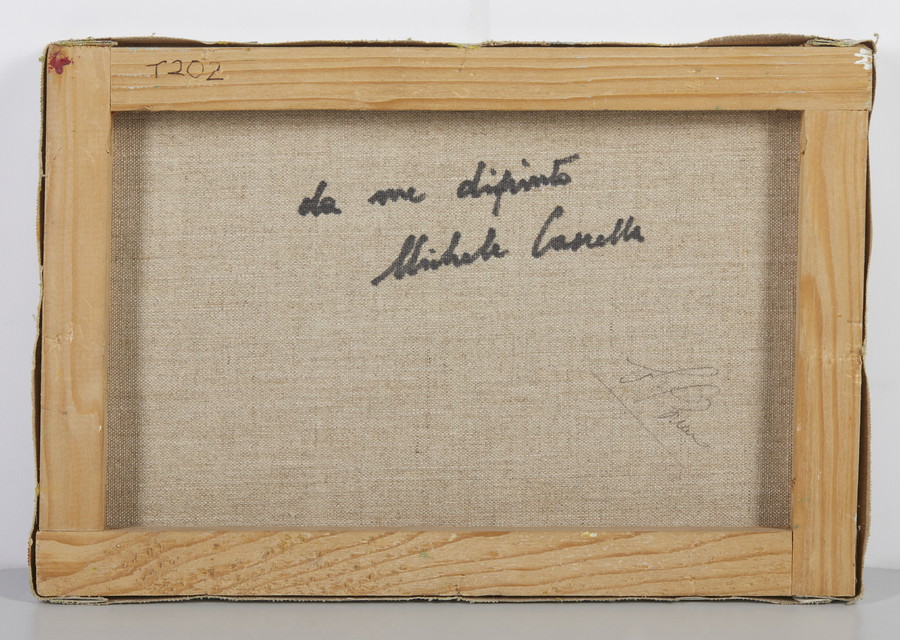 T202
da me dipinto
Michele Cascella